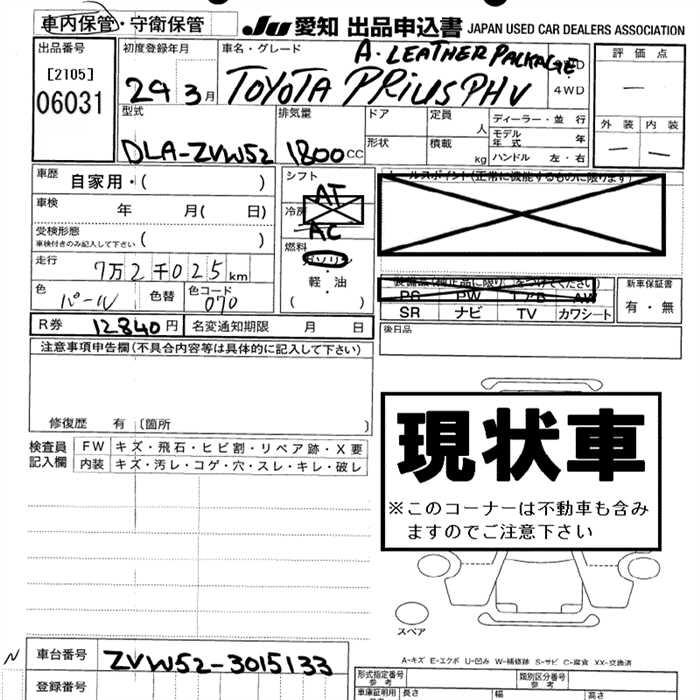 車内保管・守衛保管 JU 愛知 出品申込書 JAPAN USED CAR DEALERS ASSOCIATION
出品番号 [2105] 06031
初度登録年月 29 3月
車名・グレード A. LEATHER PACKAGE
TOYOTA PRIUS PHV 4WD
評価点 —
外装 — 内装 —
型式 DLA-ZVW52
排気量 1800CC
ドア 定員 人
形状 積載 kg
ディーラー・並行
モデル年式 年
ハンドル 左・右
車歴 自家用・( )
車検 年 月( 日)
受検形態 車検付きのみ記入して下さい ( )
走行 7万2千025km
色 パール 色替 色コード 070
シフト AT
冷房 AC
燃料 ガソリン
軽・油
( )
(正常に機能するものに限ります)
PS PW エアB AW
SR ナビ TV カワシート
新車保証書
有・無
後日品
R券 12840円 名変通知期限 月 日
注意事項申告欄(不具合内容等は具体的に記入して下さい)
修復歴 有 〔箇所 〕
検査員記入欄
FW キズ・飛石・ヒビ割・リペア跡・X要
内装 キズ・汚レ・コゲ・穴・スレ・キレ・破レ
現状車
※このコーナーは不動車も含み
ますのでご注意下さい
スペア
A-キズ E-エクボ U-凹み W-補修跡 S-サビ C-腐食 XX-交換済
N 車台番号 ZVW52-3015133
登録番号
形式指定番号 参考 類別区分番号 参考
車庫証明用 長さ 幅 高さ